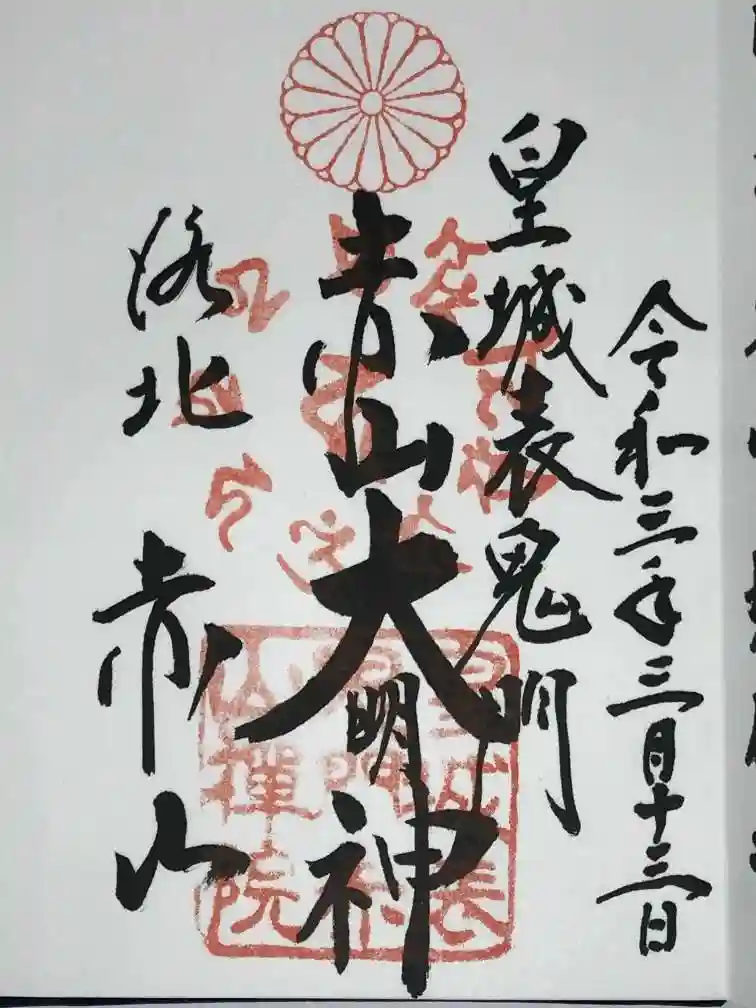 令和三年三月十三日
皇城表鬼門
赤山大明神
洛北 赤山
皇城表
山禪院